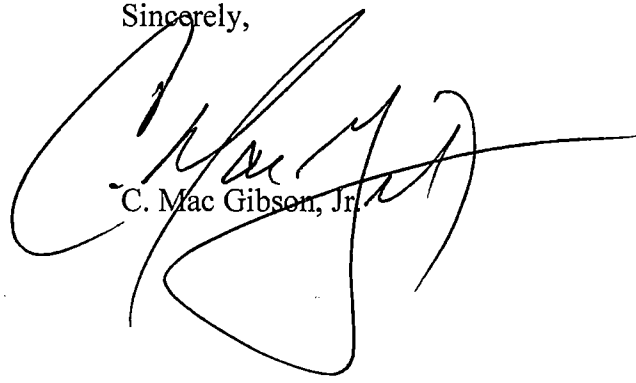 Sincerely,
C. Mac Gibson, Jr.